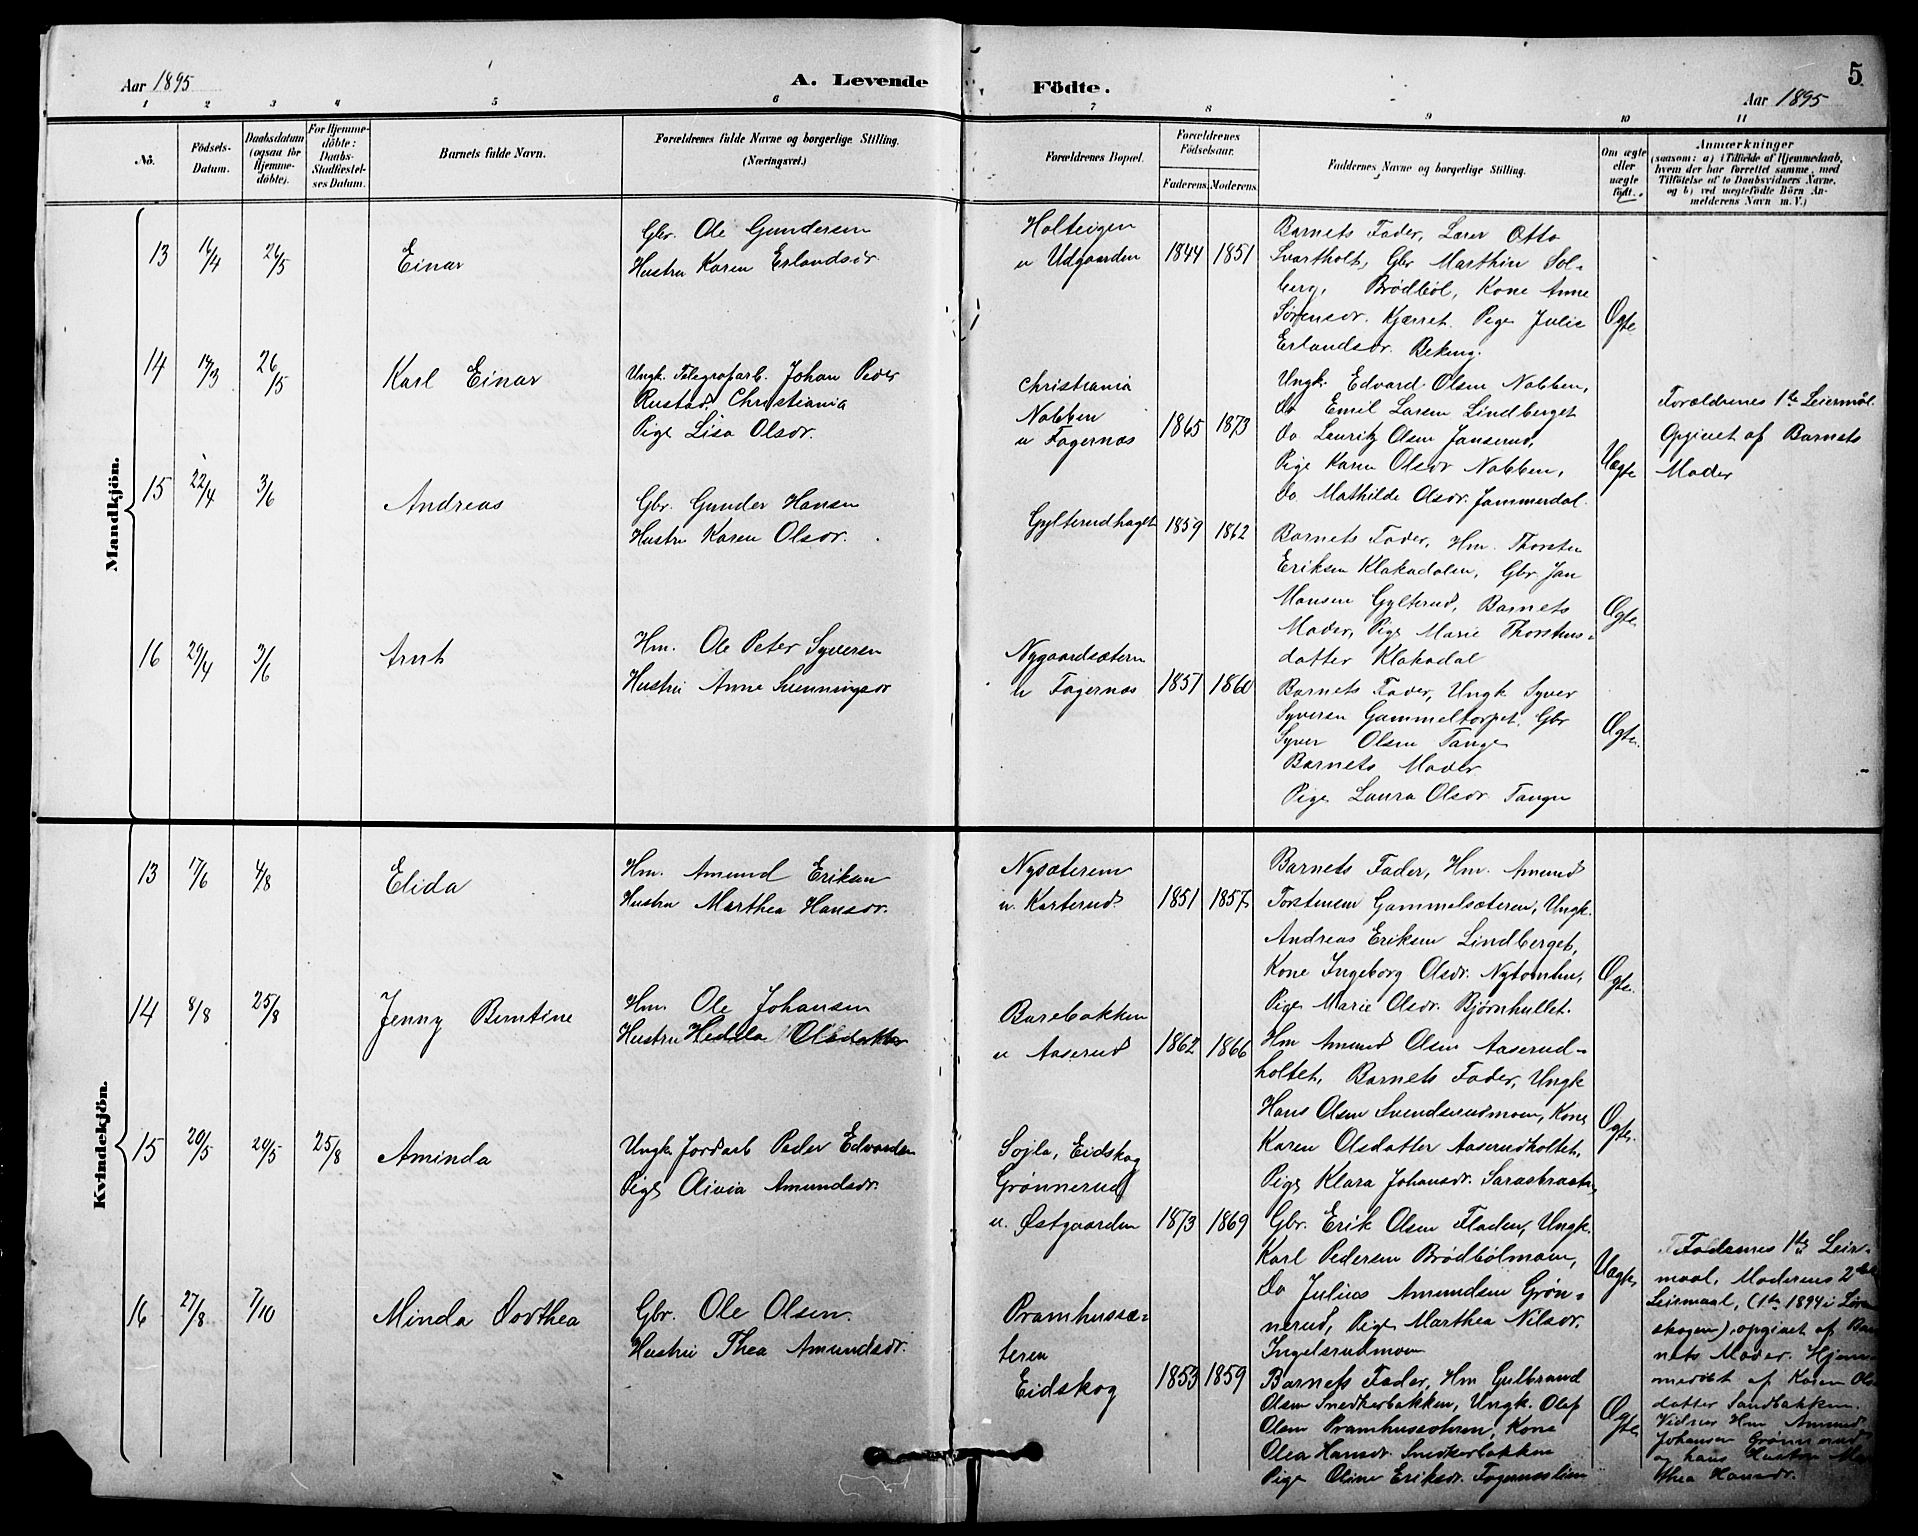 Aar 1895
A. Levende
Födte.
Aar 1895
5
1 2 3 4 5 6 7 8 9 10 11
No.
Födsels-
Datum.
Daabsdatum
(ogsaa for
Hjemme-
döbte).
For Hjemme-
döbte:
Daabs-
Stadfæstel-
ses Datum.
Barnets fulde Navn.
Forældrenes fulde Navne og borgerlige Stilling.
(Næringsvei.)
Forældrenes Bopæl.
Forældrenes
Födselsaar.
Faderens.
Moderens.
Faddernes Navne og borgerlige Stilling.
Om ægte
eller
uægte
født.
Anmærkninger
(saasom: a) i Tilfælde af Hjemmedaab,
hvem der har forrettet samme, med
Tilföielse af to Daabsvidners Navne,
og b) ved uægtefödte Börn An-
melderens Navn m. V.)
Mandkjön.
13
16/4
26/5
Einar
Gbr. Ole Gundersen
Hustru Karen Erlandsdr
Holtvigen
u Udgaarden
1844
1851
Barnets Fader, Lærer Otto
Svartholt, Gbr Marthin Sol-
berg, Brødbøl, Kone Anne
Sørensdr. Kjærret. Pige Julie
Erlandsdr. Beking.
Ægte
14
17/3
26/5
Karl Einar
Ungk. Telegrafarb. Johan Peder
Rustad, Christiania
Pige Lisa Olsdr.
Christiania
Nabben
u Fagernæs
1865
1873
Ungk. Edvard Olsen Nabben,
do Emil Larsen Lindberget
do Lauritz Olsen Janserud,
Pige Karen Olsdr Nabben,
do Mathilde Olsdr. Jammerdal.
Uægte
Forældrenes 1ste Leiermål.
Opgivet af Barnets
Moder
15
22/4
3/6
Andreas
Gbr. Gunder Hansen
Hustru Karen Olsdr.
Gylterudhaget
1859
1862
Barnets Fader, Hm. Thorsten
Eriksen Klakadalen, Gbr Jan
Hansen Gylterud, Barnets
Moder, Pige Marie Thorstens-
datter Klakadal
Ægte
16
29/4
3/6
Arnt
Hm. Ole Peter Syversen
Hustru Anne Svenningsdr
Nygaardsætern
u Fagernæs
1857
1860
Barnets Fader, Ungk Syver
Syversen Gammeltorpet. Gbr
Syver Olsen Tangen
Barnets Moder
Pige Laura Olsdr. Tangen
Ægte
Kvindekjön.
13
17/6
4/8
Elida
Hm. Amund Eriksen
Hustru Marthea Hansdr.
Nysæteren
u. Karterud
1851
1857
Barnets Fader, Hm. Amund
Torstensen Gammelsæteren, Ungk.
Andreas Eriksen Lindberget,
Kone Ingeborg Olsdr. Nytomten,
Pige Marie Olsdr. Bjørnhullet.
Ægte
14
8/8
25/8
Jenny Berntine
Hm. Ole Johansen
Hustru Hedda Olsdatter
Barebakken
u Aaserud
1862
1866
Hm Amund Olsen Aaserud-
holtet, Barnets Fader, Ungk
Hans Olsen Svendserudmoen, Kone
Karen Olsdatter Aaserudholtet,
Pige Klara Johansdr.
Ægte
15
20/5
20/5
25/8
Aminda
Ungk. Jordarb Peder Edvardsen
Pige Olivia Amundsdr.
Sojla, Eidskog
Grønnerud
u. Østgaarden
1873
1869
Gbr. Erik Olsen Fladen, Ungk.
Karl Pedersen Brødbølmoen,
do Julius Amundsen Grøn-
nerud, Pige Marthea Nilsdr.
Ingelsrudmoen
Uægte
Faderenes 1ste Leier-
maal, Moderens 2det
Leiermaal, (1te 1894 i Løren
skogen), opgivet af Bar
nets Moder. Hjem
medøbt af Karen Ols
datter Sandbakken.
Vidner Hm Amund
Johansen Grønnerud
og hans Hustru Mar
thea Hansdr.
16
27/8
7/10
Minda Dorthea
Gbr. Ole Olsen
Hustru Thea Amundsdr.
Pramhussæ-
teren
Eidskog
1853
1859
Barnets Fader, Hm Gulbrand
Olsen Snedkerbakken, Ungk. Olaf
Olsen Pramhussæteren, Kone
Olea Hansdr. Snedkerbakken
Pige Oline Eriksdr. Fagernæslien
Ægte